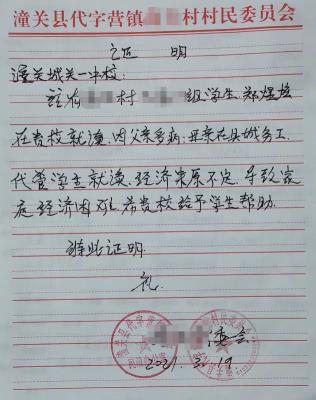 潼关县代字营镇 村村民委员会
证明
潼关城关一中校:
兹有 村 组学生郑煜
在贵校就读,因父亲多病,母亲在县城务工,
代管学生就读,经济来原不定,导致家
庭经济困难,希贵校给予学生帮助。
特此证明
礼
潼关县代字营 委会
2021. 3. 19